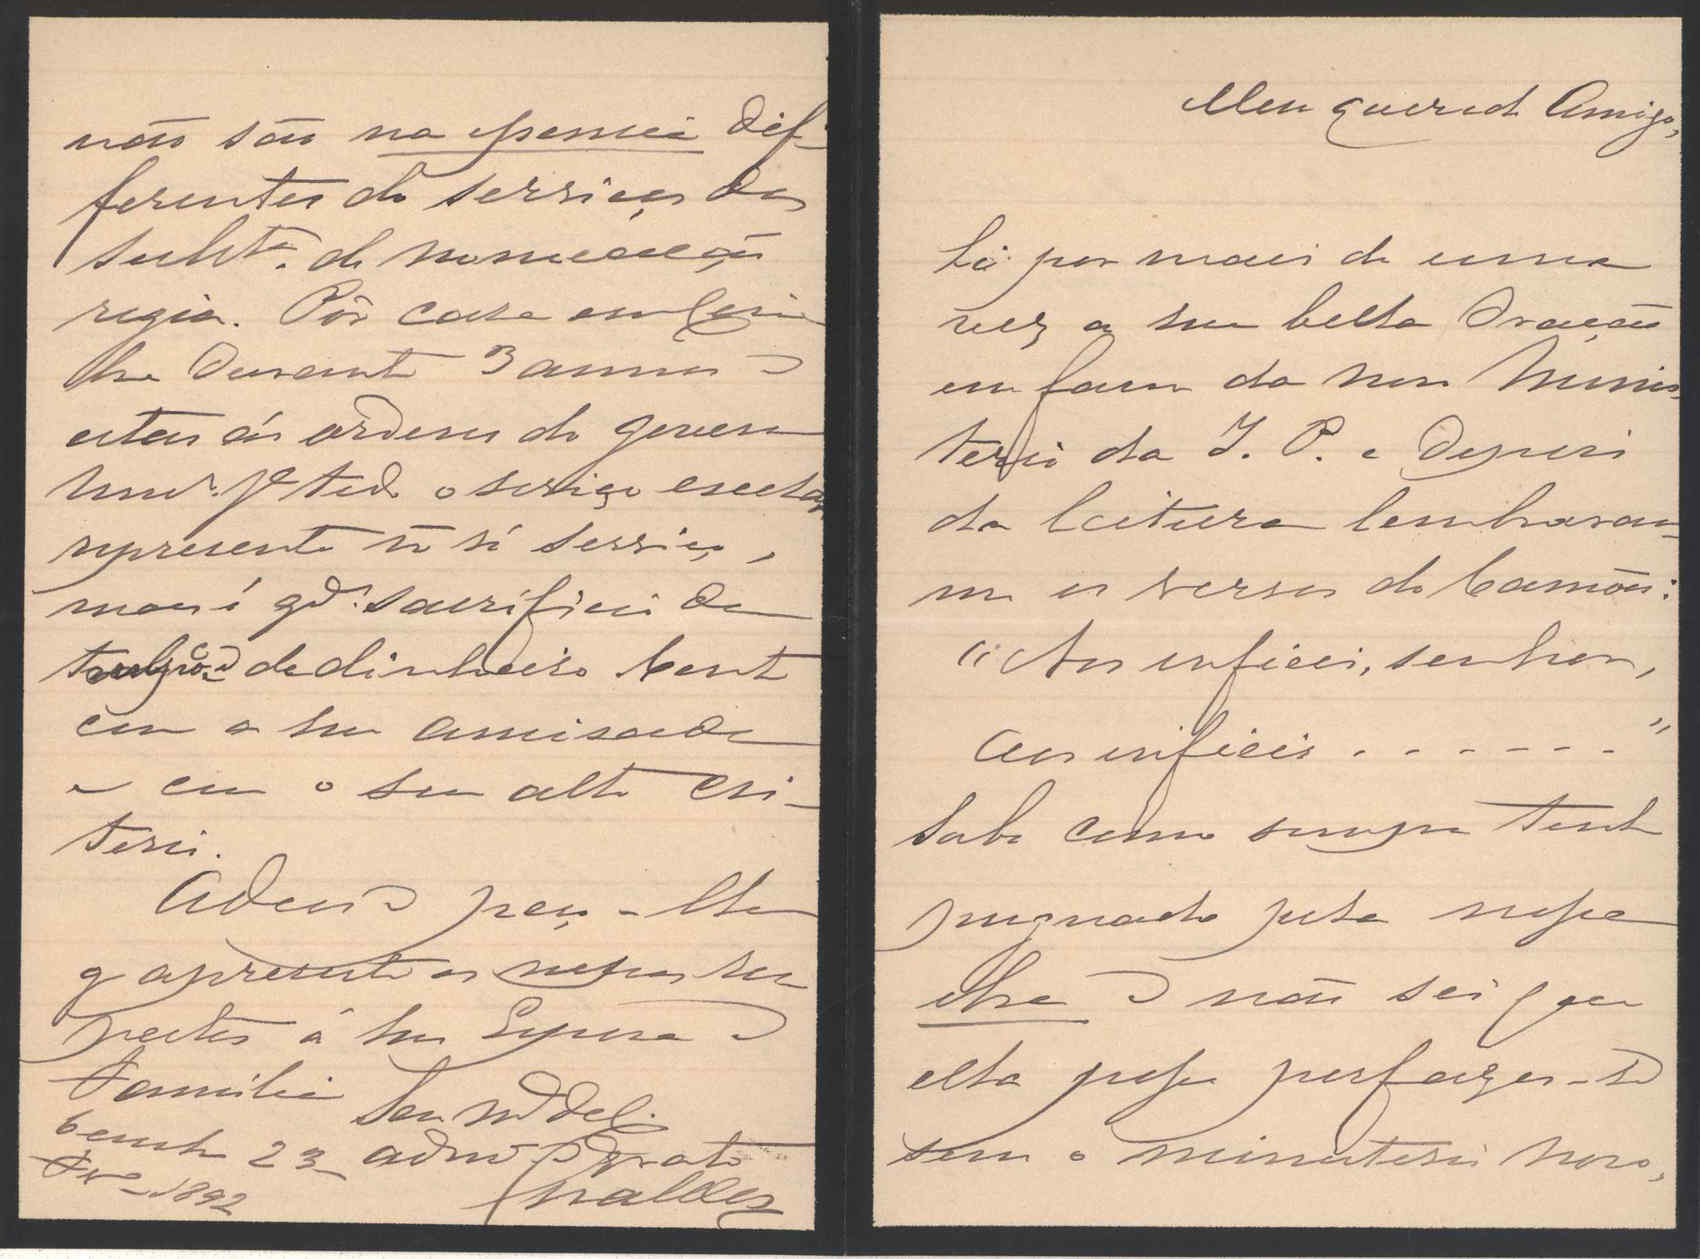 Meu querido Amigo,
Li por mais de uma
vez a sua bella Oração
em favor do novo Minis-
terio da I. P. e depois
da leitura lembraram-
me os versos de Camões:
"Aos infieis, senhor,
aos infieis . . . . . . "
Sabe como sempre tenho
pugnado pela nossa
obra e não sei q̃ que
ella possa perfazer-se
sem o ministerio novo,
não são na essencia dif-
ferentes do serviço dos
subst.os de nomeação
regia. Pôr casa em
durante 3 annos e
estar ás ordens do governo
p.a todo o serviço escolar,
representa não só serviço,
mas é gd.e sacrificio de
de dinheiro. Conto
com a sua amisade
e com o seu alto cri-
terio.
Adeus e peço-lhe
q apresente os nossos res-
peitos á sua Esposa e
Familia
Seu m.to
adm.or e grato
Coimbra 23
1892